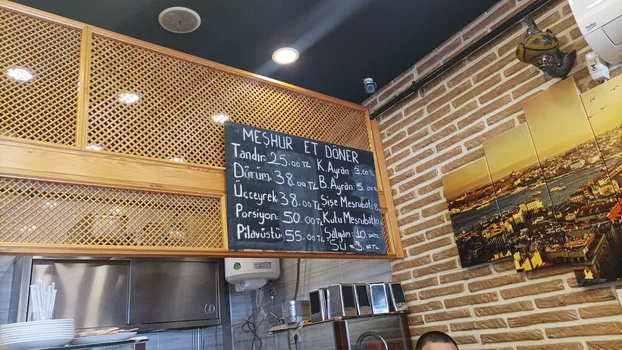 MEŞHUR ET DÖNER
Tandır: 25.00 TL K. Ayran: 3.00 TL
Dürüm: 38.00 TL B. Ayran: 5.00
Üççeyrek: 38.00 TL Şişe Meşrubat:
Porsiyon: 50.00 TL Kutu Meşrubat:
Pilavüstü: 55.00 TL Şalgam: 10.00
Su = 3.00 TL